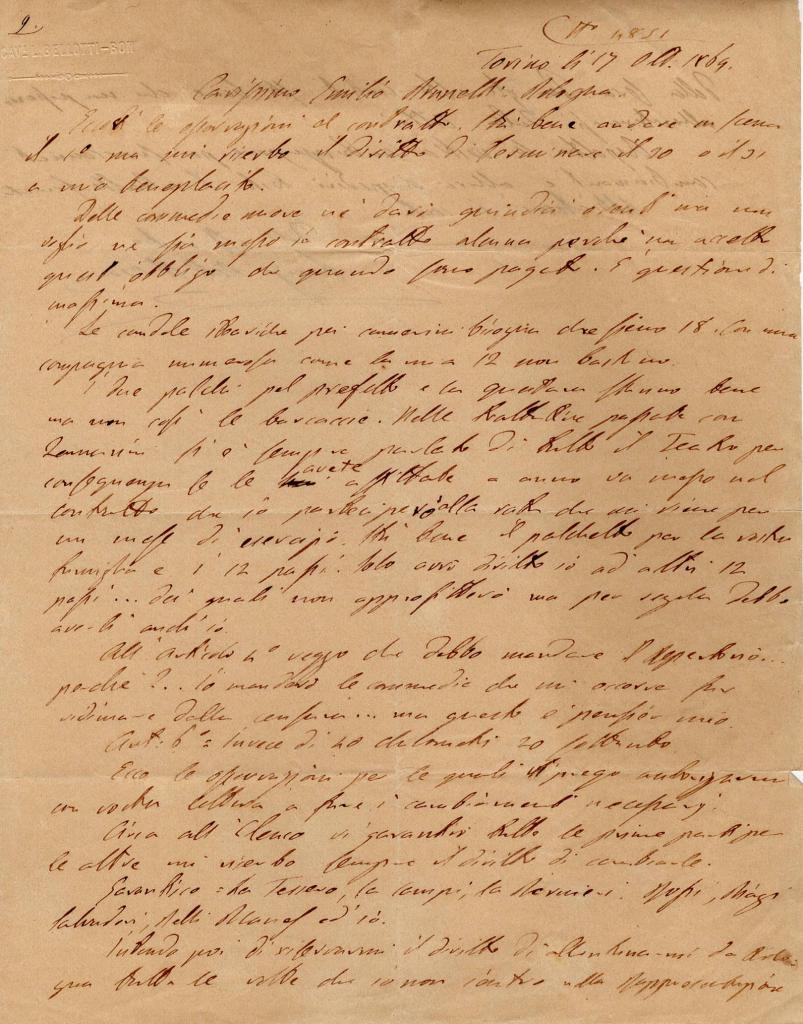 2.
CAV. L. BELLOTTI-BON
N° 4851
Torino li 17 Ott. 1869.
Carissimo Emilio Bologna
Eccoti le osservazioni al contratto. Sta bene andare in scena
il 1° ma mi riserbo il diritto di terminare il 30 o il 31
a mio beneplacito.
Delle commedie nuove ne darò quindici o venti ma non
voglio ne sia messo in contratto alcuna perché non accetto
quest'obbligo che quando sono pagato. È questione di
massima.
Le candele steariche pei camerini bisogna che sieno 18. Con una
compagnia numerosa come la mia 12 non bastano.
I due palchi pel prefetto e la questura stanno bene
ma non così le barcaccie. Nelle trattative passate con
si è sempre parlato di tutto il Teatro per
conseguenza se le avete affittate a anno va messo nel
contratto che io parteciperò alla rata che mi viene per
un mese di esercizio. Sta bene il palchetto per la vostra
famiglia e i 12 passi. Solo avrò diritto io ad altri 12
passi... dei quali non approfitterò ma per regola debbo
averli anch'io.
All'articolo 4° veggo che debbo mandare il Repertorio...
perché?.. Io manderò le commedie che mi occorre far
vidimare dalla censura... ma questo è pensier mio.
Art: 6° = invece di 40 chilometri 20
Ecco le osservazioni per le quali vi prego autorizzarmi
con vostra lettera a fare i cambiamenti necessarj.
Circa all'Elenco vi garantirò tutte le prime parti per
le altre mi riserbo sempre il diritto di cambiarle.
Garantisco = la Tessero, la Campi, la
Salvadori, Belli Blanes ed io.
Intendo poi di riserbarmi il diritto di da Bolo-
gna tutte le volte che io non c'entro nella rappresentazione